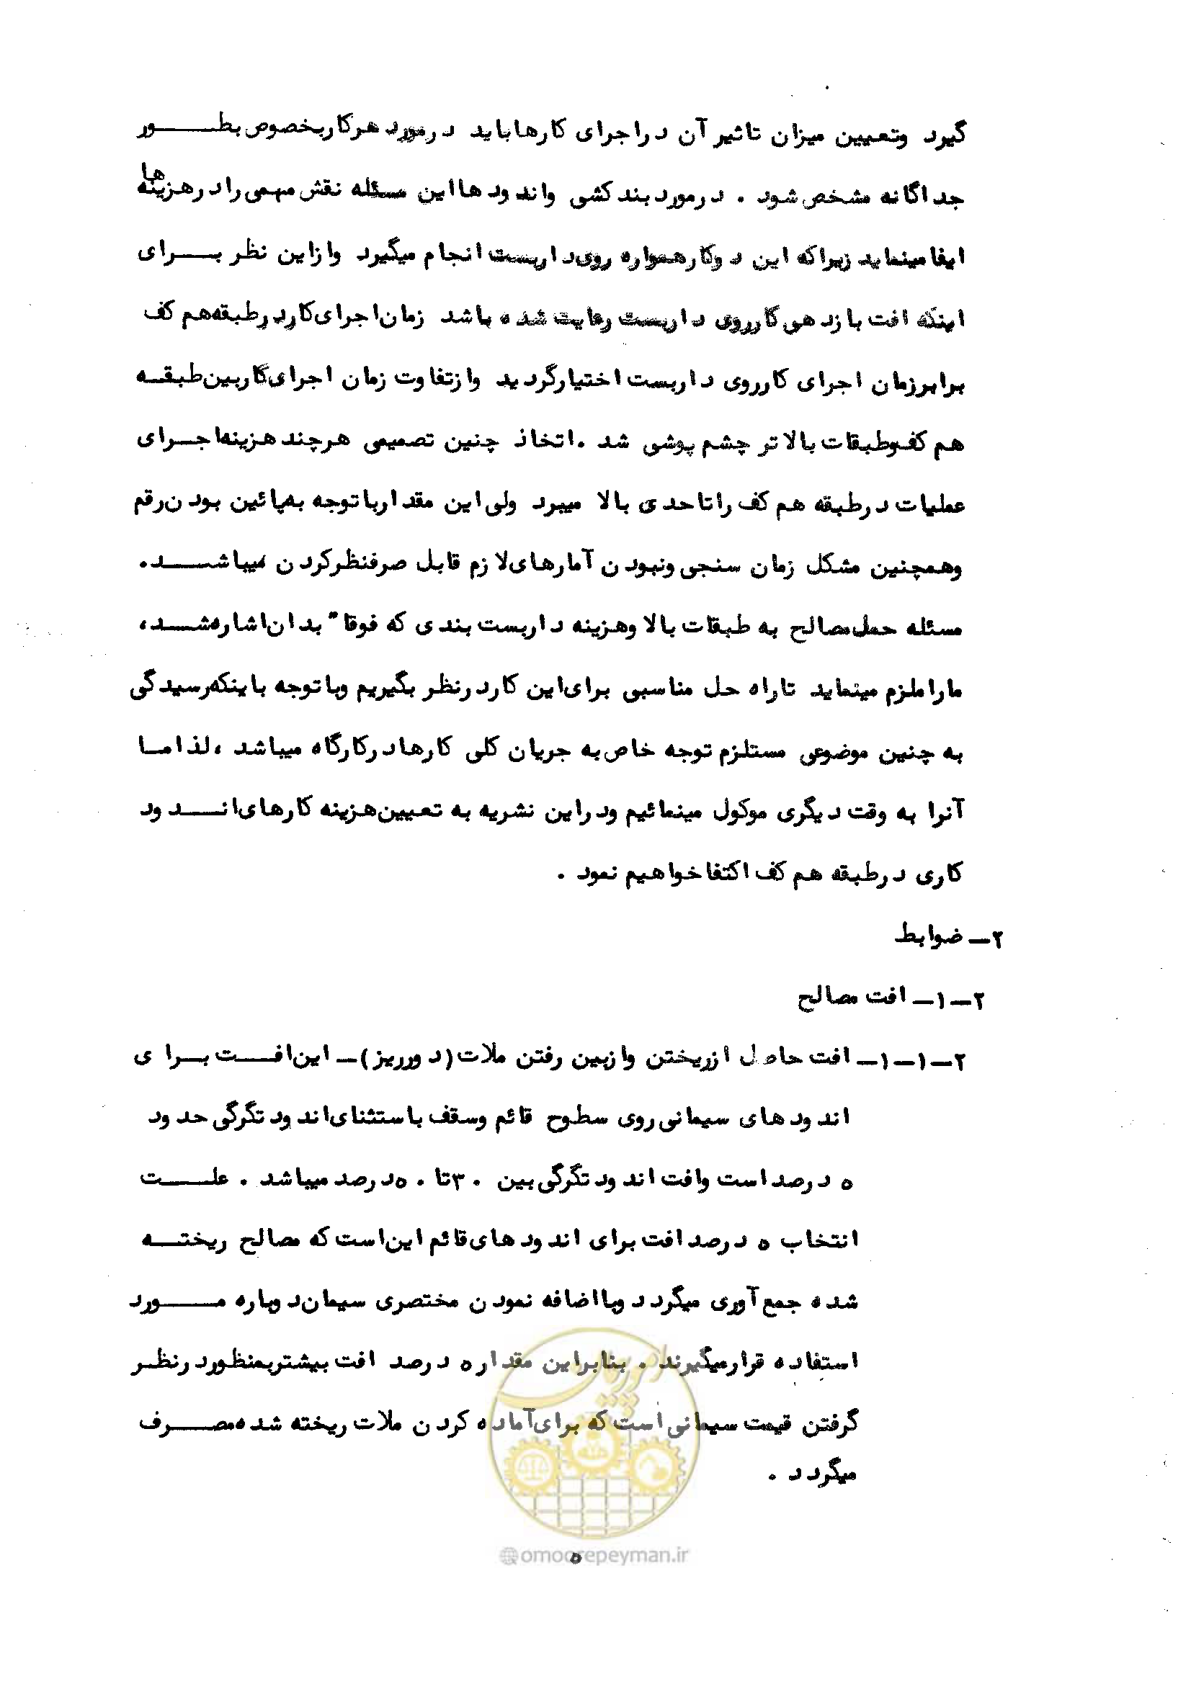 گیرد وتعیین میزان تاثیر آن دراجرای کارهاباید درمورد هرکاربخصوص بطور
جداگانه مشخص شود . درمورد بندکشی واندودها این مسئله نقش مهمی رادرهزینه ها
ایفا مینماید زیراکه این دوکارهمواره روی داربست انجام میگیرد وازاین نظر برای
اینکه افت بازدهی کارروی داربست رعایت شده باشد زمان اجرای کاردرطبقه هم کف
برابرزمان اجرای کارروی داربست اختیارگردید وازتفاوت زمان اجرای کاربین طبقه
هم کف وطبقات بالاتر چشم پوشی شد . اتخاذ چنین تصمیمی هرچند هزینه اجرای
عملیات درطبقه هم کف راتاحدی بالا میبرد ولی این مقدارباتوجه به پائین بودن رقم
وهمچنین مشکل زمان سنجی ونبودن آمارهای لازم قابل صرفنظرکردن میباشد .
مسئله حمل مصالح به طبقات بالا وهزینه داربست بندی که فوقا" بدان اشاره شد ،
مارا ملزم مینماید تاراه حل مناسبی برای این کاردرنظر بگیریم وباتوجه باینکه رسیدگی
به چنین موضوعی مستلزم توجه خاص به جریان کلی کارهادرکارگاه میباشد ، لذا ما
آنرا به وقت دیگری موکول مینمائیم ودراین نشریه به تعیین هزینه کارهای اندود
کاری درطبقه هم کف اکتفا خواهیم نمود .
۲ــ ضوابط
۲ــ۱ــ افت مصالح
۲ــ۱ــ۱ــ افت حاصل ازریختن وازبین رفتن ملات (دورریز) ــ این افت برای
اندودهای سیمانی روی سطوح قائم وسقف باستثنای اندود تگرگی حدود
۵ درصد است وافت اندود تگرگی بین ۳۰ تا ۵۰ درصد میباشد . علت
انتخاب ۵ درصد افت برای اندودهای قائم این است که مصالح ریخته
شده جمع آوری میگردد وبااضافه نمودن مختصری سیمان دوباره مورد
استفاده قرارمیگیرند . بنابراین مقدار ۵ درصد افت بیشتربمنظوردرنظر
گرفتن قیمت سیمانی است که برای آماده کردن ملات ریخته شده مصرف
میگردد .
امور پیمان
@omoorepeyman.ir
۵